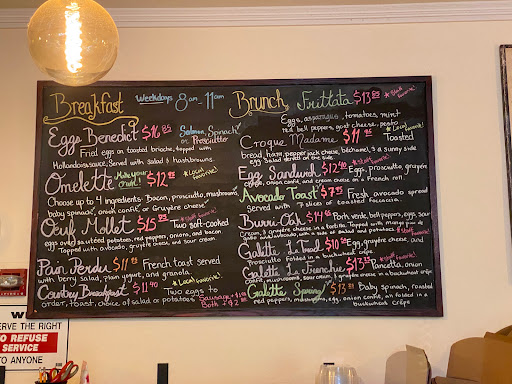 Breakfast Weekdays 8am - 11am
Eggs Benedict $16 Salmon, Spinach or Prosciutto
Fried eggs on toasted brioche, topped with
Hollandaise sauce, Served with salad & hashbrowns.
Omelette Make your own! $12 *Local favorite!
Choose up to 4 ingredients: Bacon, prosciutto, mushrooms
baby spinach, onion confit, or Gruyère cheese
Oeuf Mollet $15 *Staff favorite! Two soft-cooked
eggs over sautéed potatoes, red peppers, onions, and bacon
Topped with avocado, gruyère cheese, and sour cream.
Pain Perdu $11 French toast served
with berry salad, plain yogurt, and granola.
*Local favorite!
Country Breakfast $11.40 Two eggs to
order, toast, choice of salad or potatoes
Brunch Frittata $13 *Staff favorite!
Eggs, asparagus, tomatoes, mint
red bell peppers, goat cheese, pesto
Croque Madame $11 *Local favorite! Toasted
bread, ham, pepper jack cheese, béchamel, & a sunny side
egg. Salad served on the side.
Egg Sandwich $12 *Staff favorite! Eggs, prosciutto, gruyère
cheese, onion confit, and cream cheese on a French roll.
Avocado Toast $7 Fresh avocado spread
served with 2 slices of toasted focaccia.
Burri-Oh $14 Pork verde, bell peppers, eggs, sour
cream, & gruyère cheese in a tortilla. Topped with
and avocado, with a side of salad and potatoes
Galette La Trad $10 Egg, gruyère cheese, and
Prosciutto folded in a buckwheat crêpe.
Galette La Frenchie $13 Pancetta, onion
confit, mushrooms, sour cream, & gruyère cheese in a buckwheat crêpe
Galette Spring $13 Baby spinach, roasted
red peppers, mushrooms, egg, onion confit, all folded in a
buckwheat crêpe
SERVE THE RIGHT
TO REFUSE
SERVICE
TO ANYONE